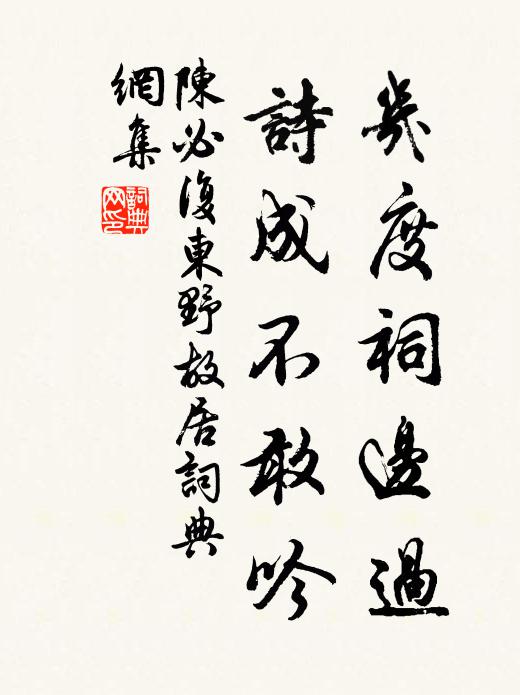 幾度祠邊過
詩成不敢吟
陳必復東野故居詞典
網集
詞典網印